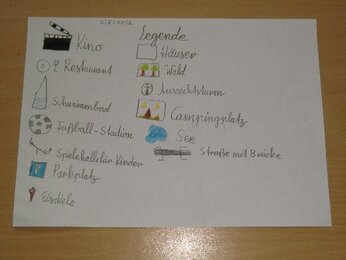 Viktoria
Legende
Kino
Restaurant
Schwimmbad
Fußball-Stadion
Spielehalle für Kinder
Parkplatz
Eisdiele
Häuser
Wald
Aussichtsturm
Campingplatz
See
Straße mit Brücke